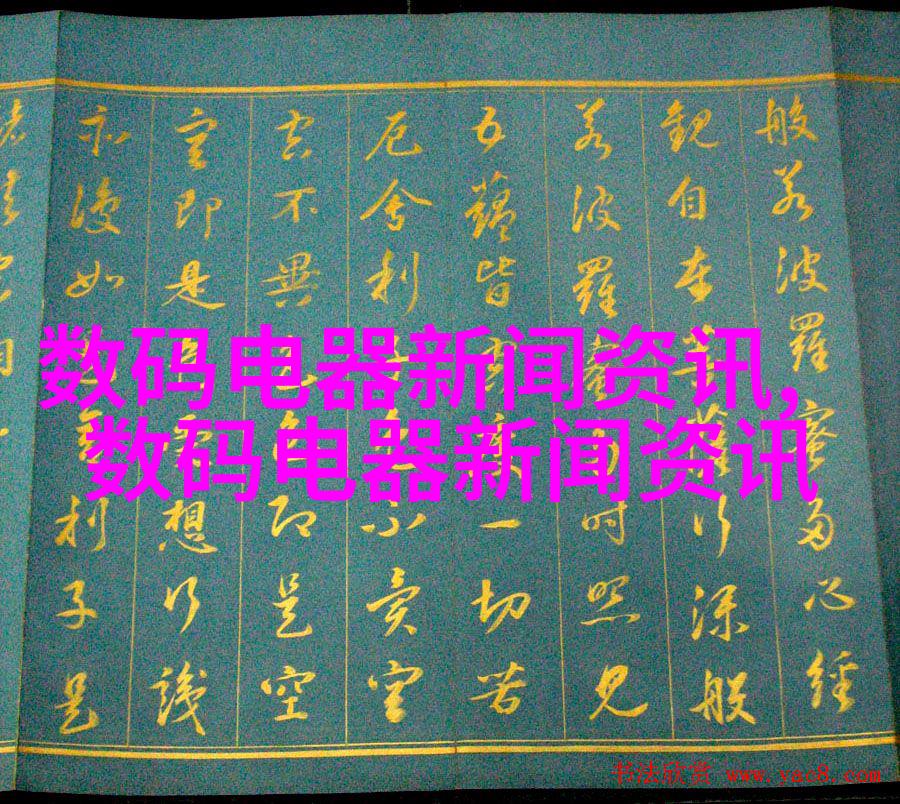 般若波羅蜜多心經
觀自在菩薩行深般
若波羅蜜多時照見
五蘊皆空度一切苦
厄舍利子色不異空
空不異色色即是空
空即是色受想行識
亦復如是舍利子是
数码电器新闻资讯,
数码电器新闻资讯
书法欣赏 www.yac8.com